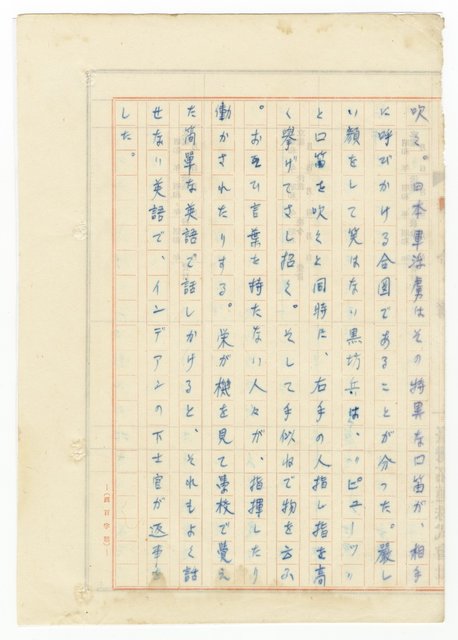 吹く。日本軍俘虜はその特異な口笛が、相手
に呼びかける合図であることが分った。厳し
い顔をして笑はない黒坊兵は、「ピューッ」
と口笛を吹くと同時に、右手の人指し指を高
く挙げてさし招く。そして手似ねで物を云ふ
。お互ひ言葉を持たない人々が、指揮したり
働かされたりする。栄が機を見て学校で覚え
た簡単な英語で話しかけると、それもよく話
せない英語で、インデアンの下士官が返事を
した。